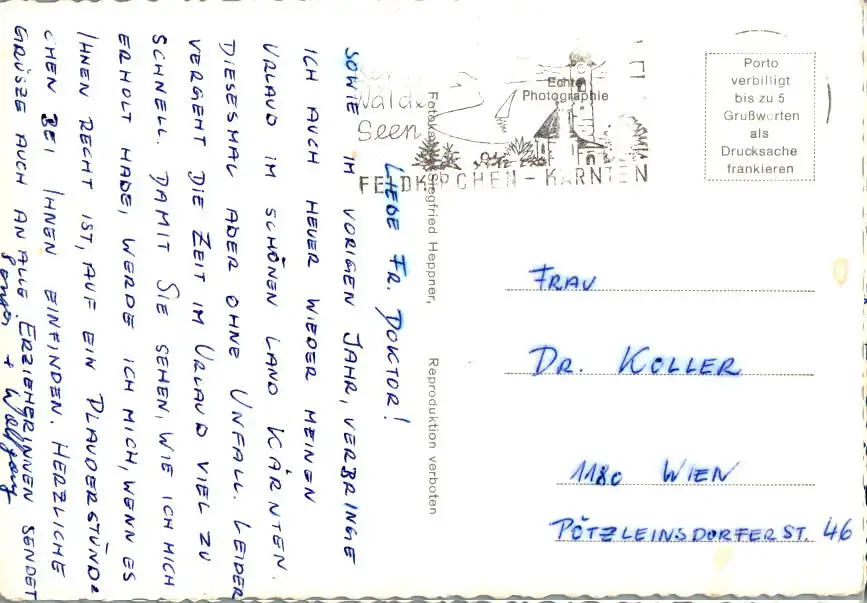 LIEBE FR. DOKTOR!
SOWIE IM VORIGEN JAHR, VERBRINGE
ICH AUCH HEUER WIEDER MEINEN
URLAUB IM SCHÖNEN LAND KÄRNTEN.
DIESESMAL ABER OHNE UNFALL. LEIDER
VERGEHT DIE ZEIT IM URLAUB VIEL ZU
SCHNELL. DAMIT SIE SEHEN, WIE ICH MICH
ERHOLT HABE, WERDE ICH MICH, WENN ES
IHNEN RECHT IST, AUF EIN PLAUDERSTÜND=
CHEN BEI IHNEN EINFINDEN. HERZLICHE
GRÜSZE AUCH AN ALLE ERZIEHERINNEN SENDET
+ Wolfgang
Siegfried Heppner, Reproduktion verboten
Echte
Photographie
Wälder
Seen
FELDKIRCHEN - KÄRNTEN
Porto
verbilligt
bis zu 5
Grußworten
als
Drucksache
frankieren
FRAU
DR. KOLLER
1180 WIEN
PÖTZLEINSDORFERST. 46